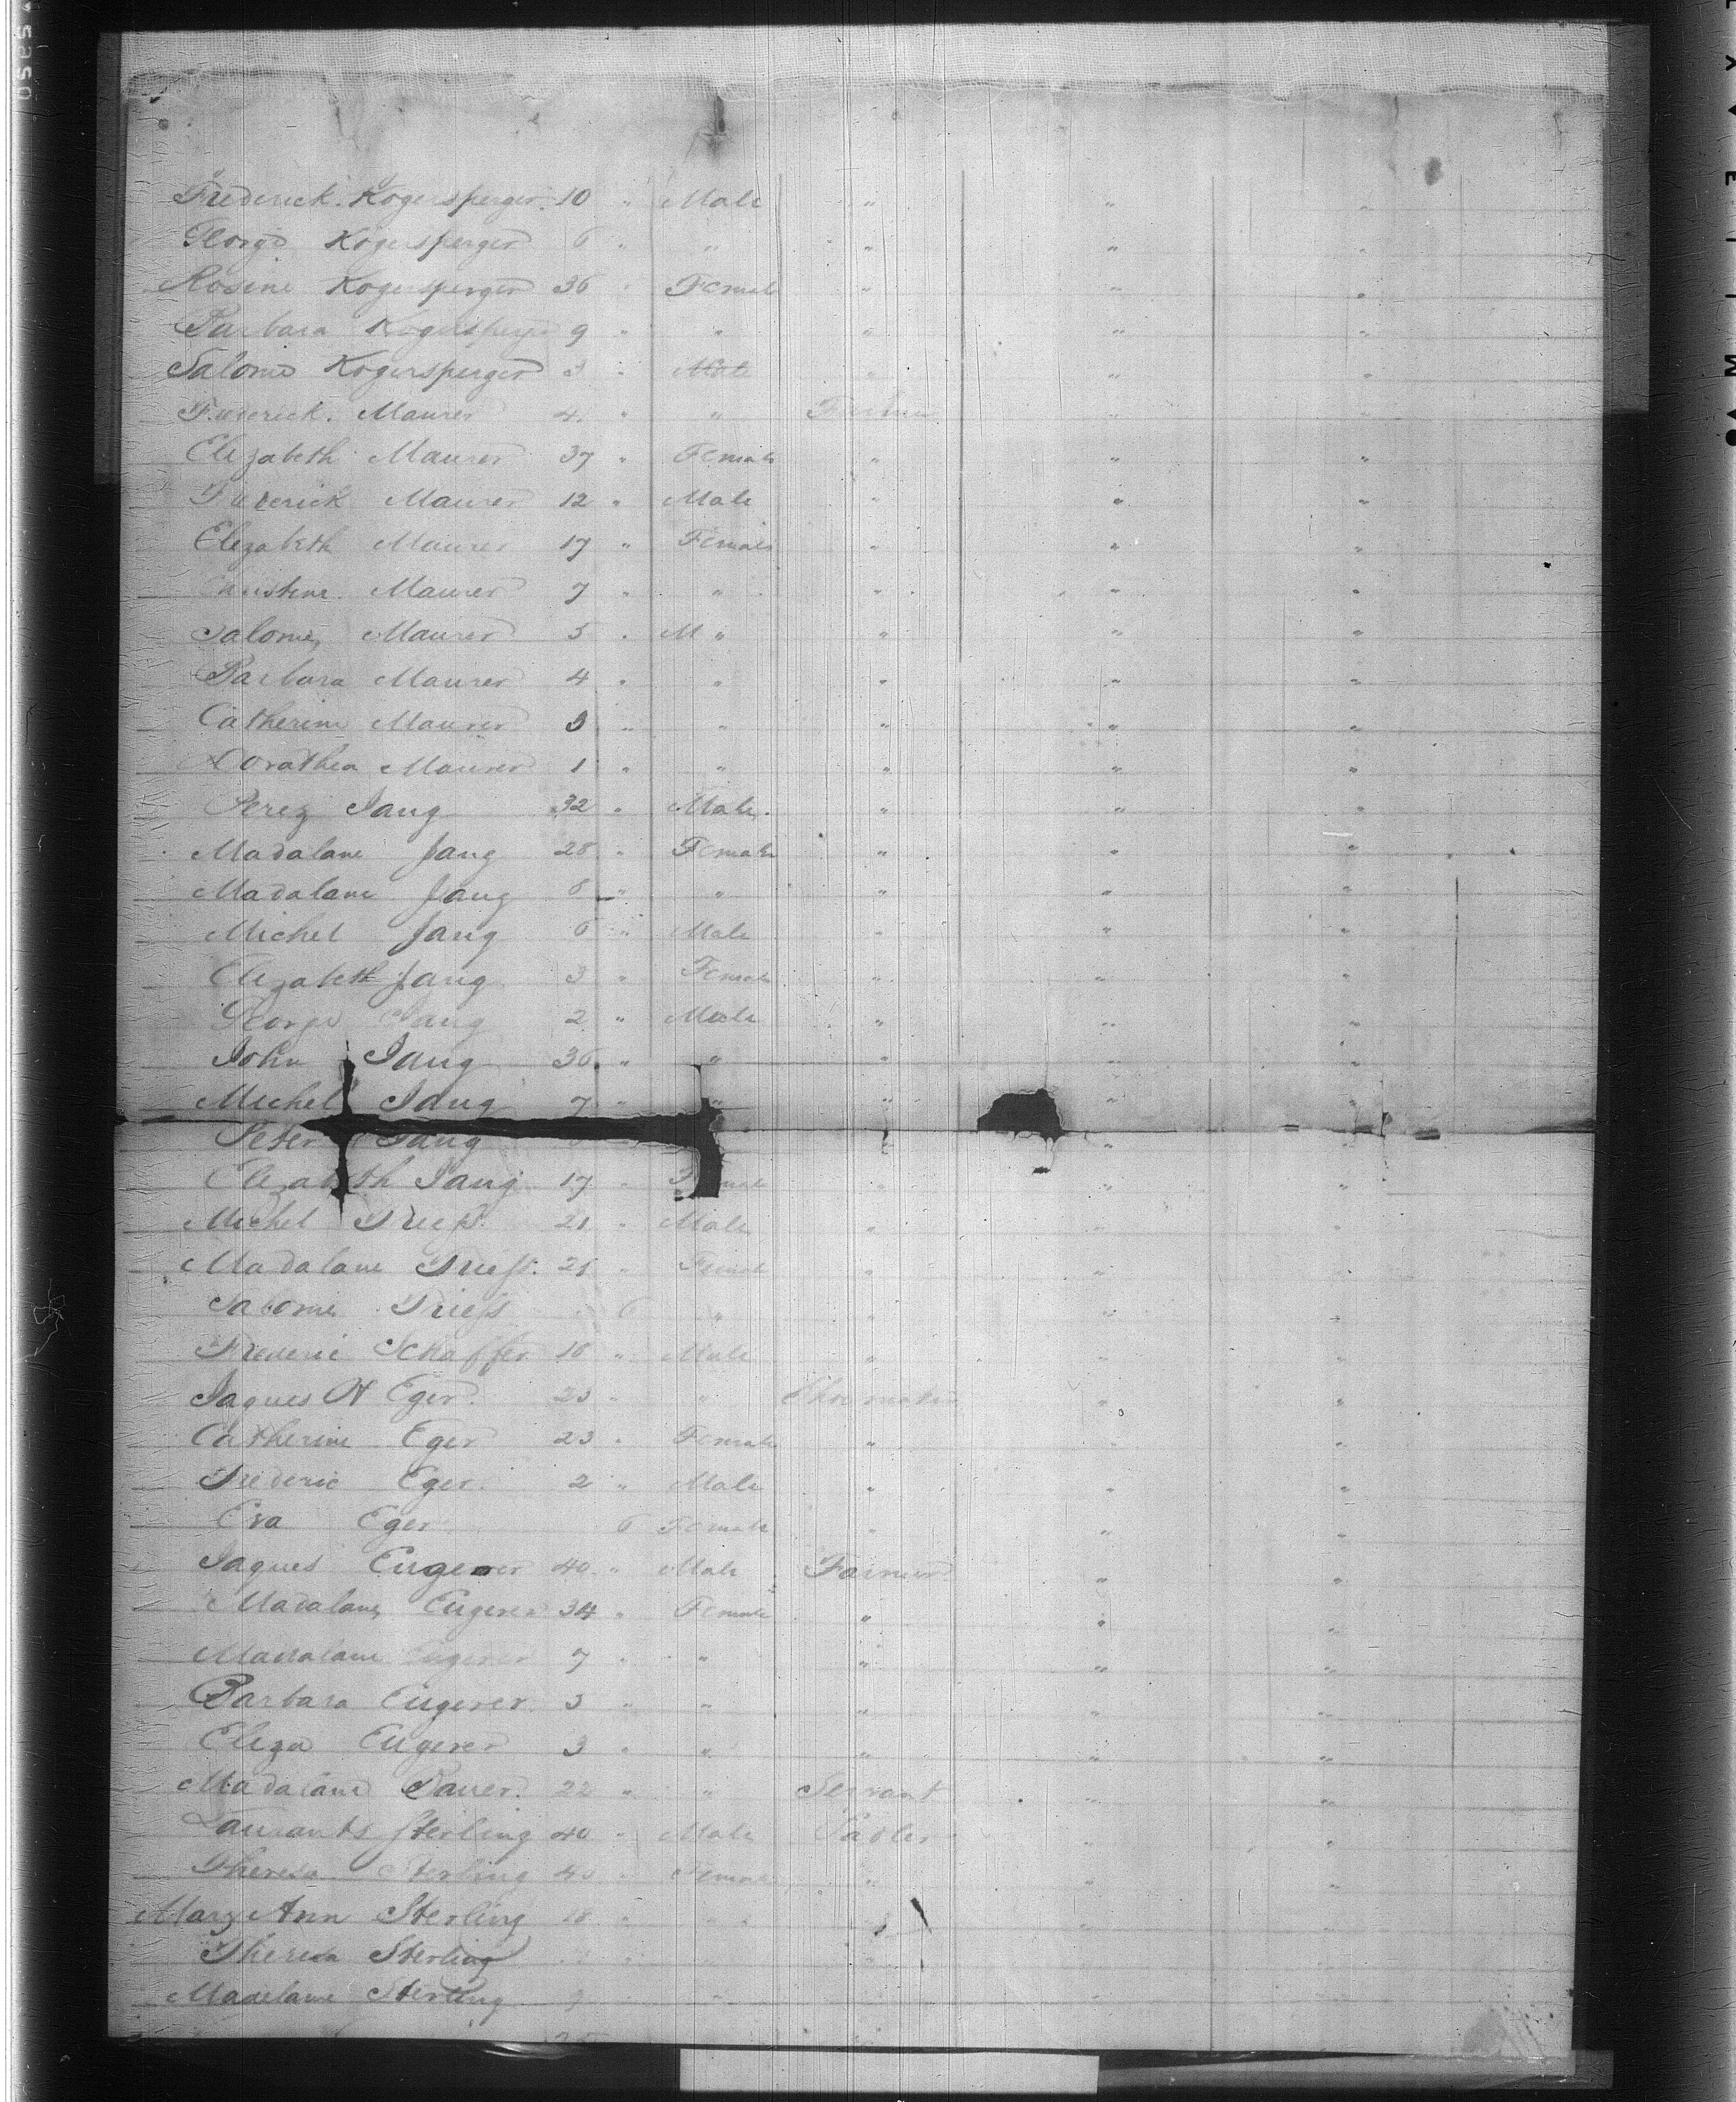 Frederick Kogersperger 10 " Male " " "
George Kogersperger 6 " " " " "
Rosine Kogersperger 36 " Female " " "
Barbara Kogersperger 9 " " " " "
Salome Kogersperger 3 " Male " " "
Frederick Maurer 4 " " " "
Elizabeth Maurer 37 " Female " " "
Frederick Maurer 12 " Male " " "
Elizabeth Maurer 17 " Female " " "
Christine Maurer 7 " " " " "
Salome Maurer 5 " M " " " "
Barbara Maurer 4 " " " " "
Catherine Maurer 3 " " " " "
Dorathea Maurer 1 " " " " "
Jang 32 " Male " " "
Madalane Jang 28 " Female " " "
Madalane Jang 8 " " " " "
Michel Jang 6 " Male " " "
Elizabeth Jang 3 " Female " " "
George Jang 2 " Male " " "
John Jang 36 " " " " "
Michel Jang 7 " " " " "
Peter Jang " " "
Elizabeth Jang 17 " Female " " "
Michel Driess 21 " Male " " "
Madalane Driess 25 " Female " " "
Salome Driess 6 " " " "
Frederic Schaffer 18 " Male " " "
Jaques H Eger 23 " " Shoemaker " "
Catherine Eger 23 " Female " " "
Frederic Eger 2 " Male " " "
Eva Eger 6 Female " " "
Jaques Eugerer 40 " Male Farmer " "
Madalane Eugerer 34 " Female " " "
Madalane Eugerer 7 " " " " "
Barbara Eugerer 3 " " " " "
Eliza Eugerer 3 " " " " "
Madalane 22 " " Servant " "
Laurants Sterling 40 " Male Sadler " "
Theresa Sterling 40 " Female " " "
Mary Ann Sterling 18 " " " " "
Theresa Sterling " " " " "
Madelane Sterling 9 " " " "